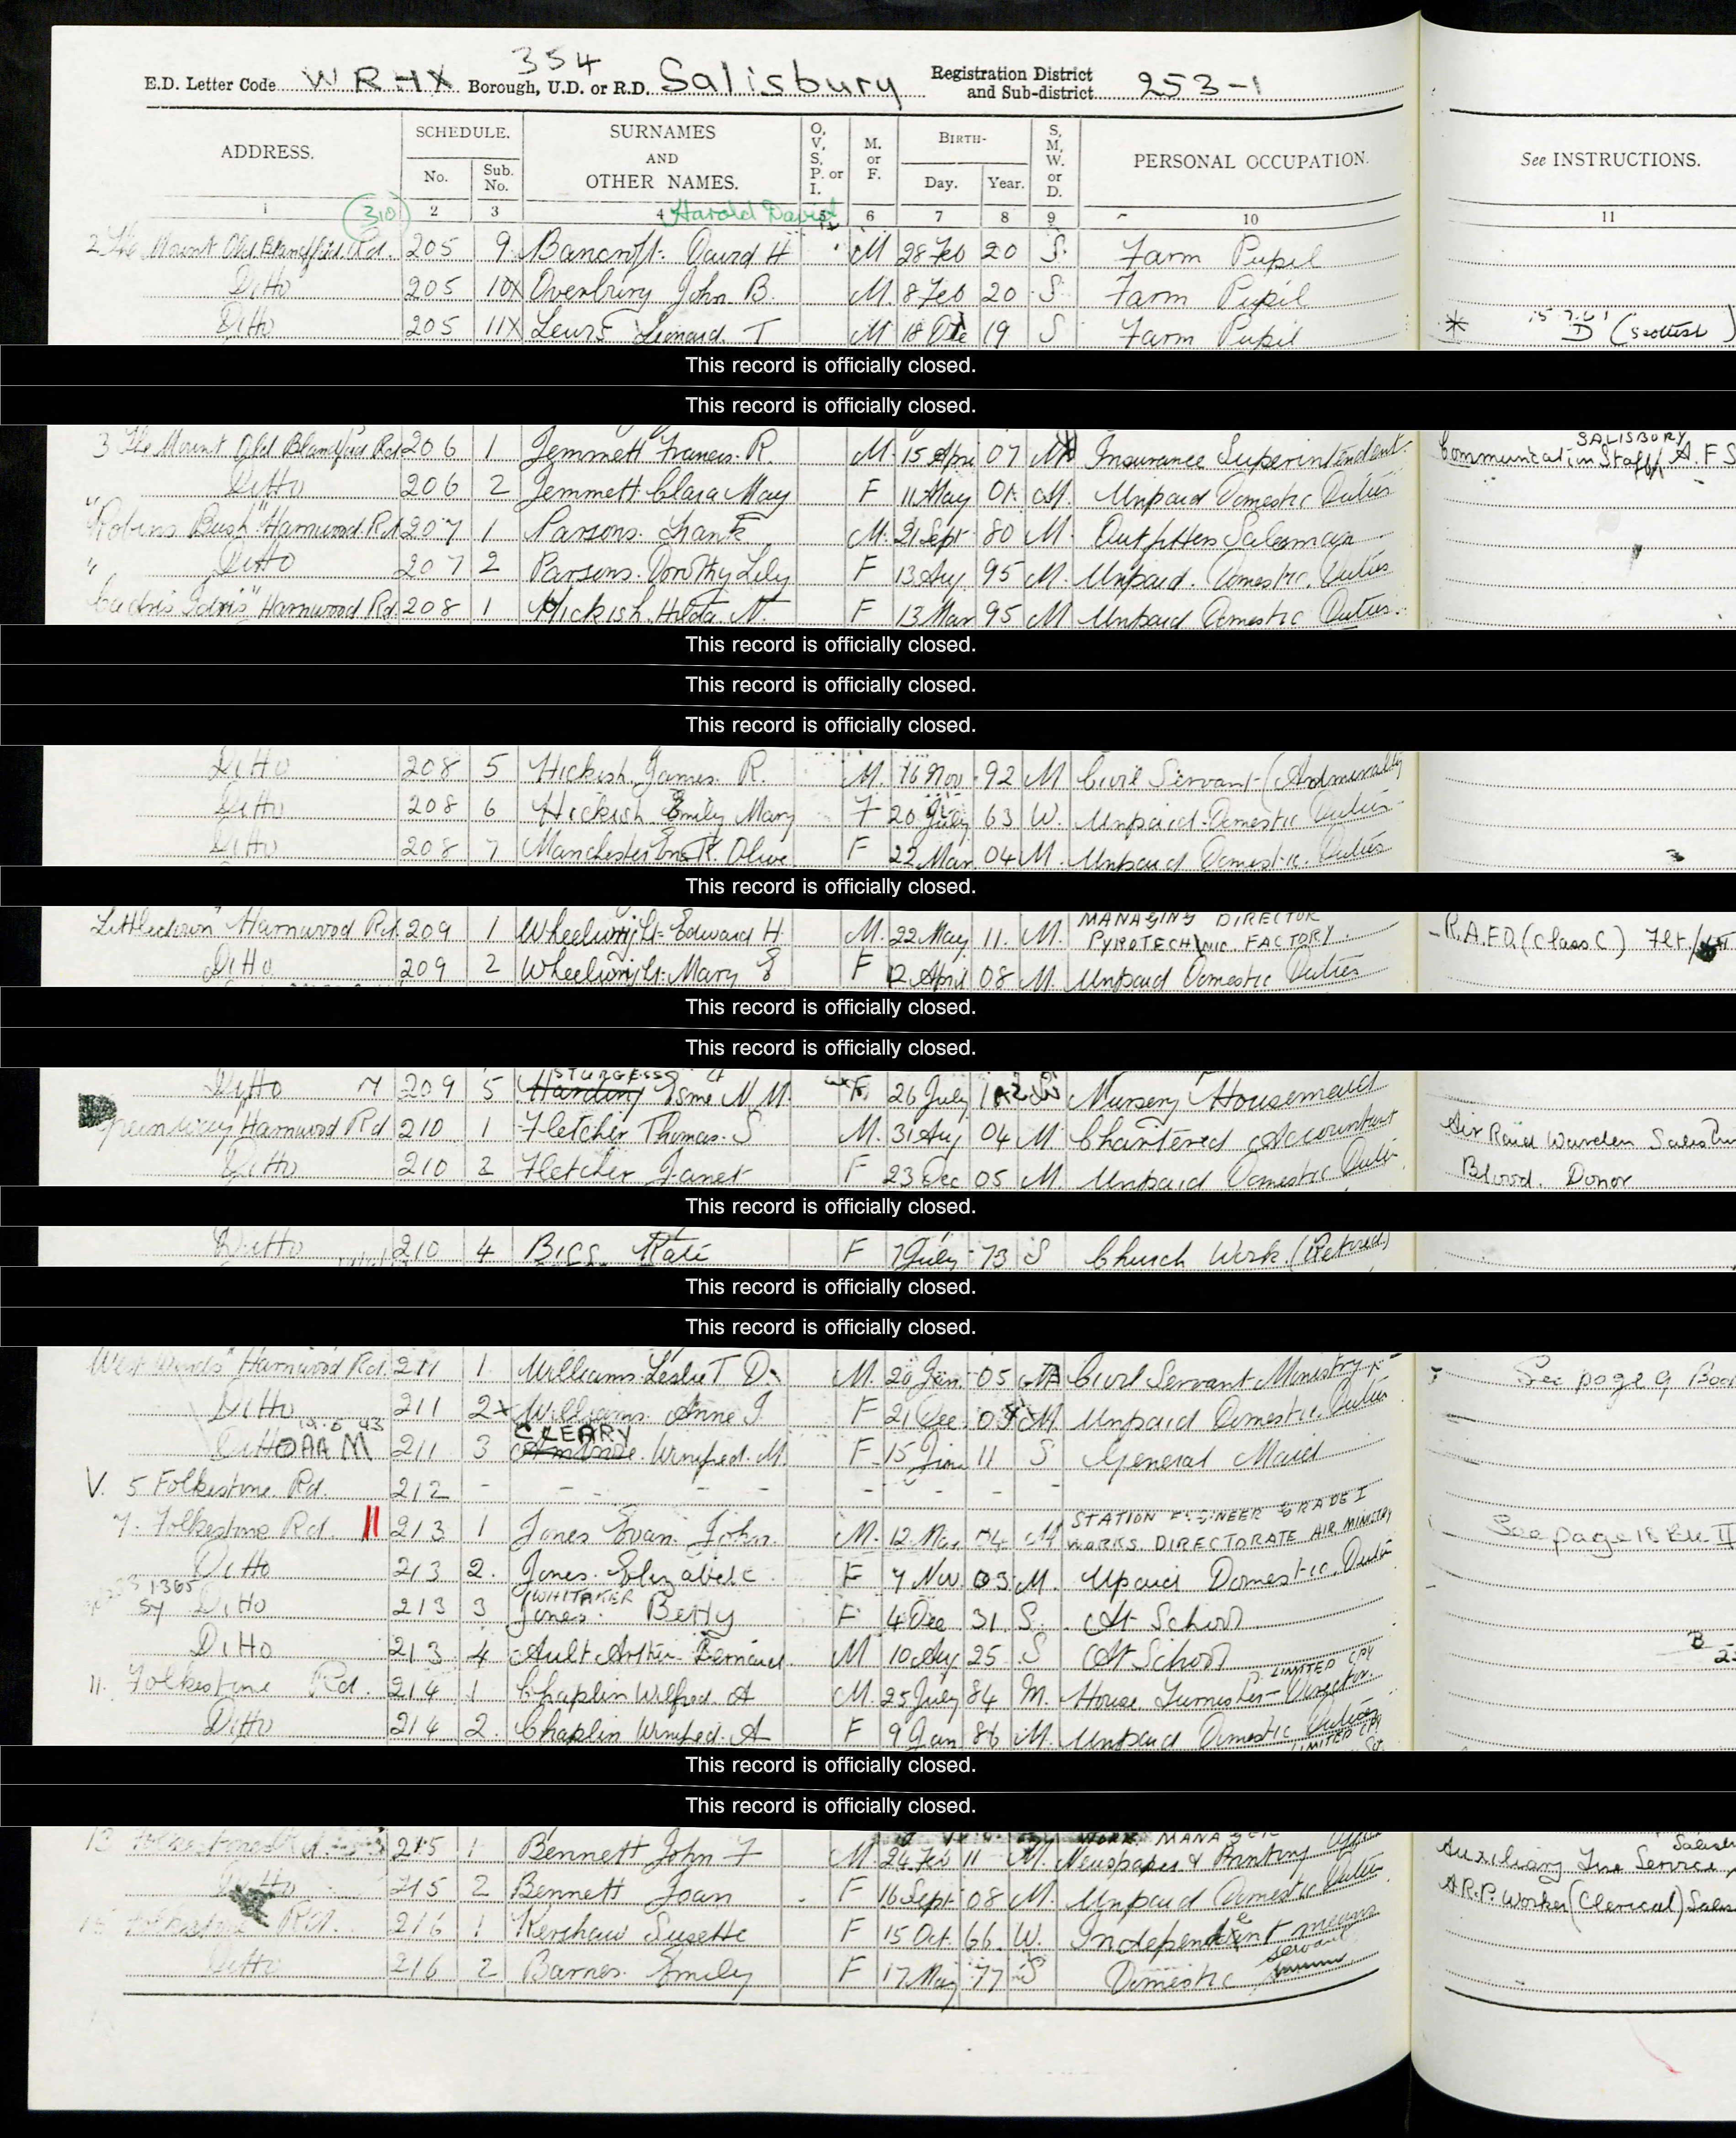 354
E.D. Letter Code WR-1X Borough, U.D. or R.D. Salisbury Registration District and Sub-district 253-1
ADDRESS. SCHEDULE. No. Sub. No. SURNAMES AND OTHER NAMES. O, V, S, P. or I. M. or F. BIRTH- Day. Year. S, M, W. or D. PERSONAL OCCUPATION. See INSTRUCTIONS.
1 2 3 4 5 6 7 8 9 10 11
310 Harold David
2 The Mount Old Blandford Rd. 205 9 Bancroft David H M 28 Feb 20 S. Farm Pupil
Ditto 205 10X Overbury John B. M. 8 Feb 20 S Farm Pupil
Ditto 205 11X Lewis Leonard T M 18 Dec 19 S Farm Pupil * D (Scottish)
This record is officially closed.
This record is officially closed.
3 The Mount Old Blandford Rd 206 1 Jemmett Francis R. M. 15 Apr 07 M Insurance Superintendent. Communication Staff SALISBURY A.F.S
Ditto 206 2 Jemmett Clara May F 11 May 01 M. Unpaid Domestic Duties
"Robins Bush" Harnwood Rd 207 1 Parsons. Frank M. 21 Sept 80 M. Outfitters Salesman
" Ditto 207 2 Parsons. Dorothy Lily F 13 Aug 95 M. Unpaid. Domestic. Duties
Harnwood Rd. 208 1 Hickish. Hilda. N. F 13 Mar 95 M Unpaid Domestic Duties.
This record is officially closed.
This record is officially closed.
This record is officially closed.
Ditto 208 5 Hickish. James. R. M. 16 Nov 92 M Civil Servant (Admiralty
Ditto 208 6 Hickish Emily Mary F 20 July 63 W. Unpaid Domestic Duties
Ditto 208 7 Manchester Olive F 22 Mar 04 M. Unpaid Domestic. Duties
This record is officially closed.
Littledown" Harnwood Rd. 209 1 Wheelwright Edward H. M. 22 May 11. M. MANAGING DIRECTOR PYROTECHNIC FACTORY. R.A.F.O. (Class C.) Flt./
Ditto 209 2 Wheelwright Mary E F 12 April 08 M. Unpaid Domestic Duties
This record is officially closed.
This record is officially closed.
STURGESS
Ditto 209 5 Harding Isme N M. F. 26 July Nursery Housemaid
Greenway Harnwood Rd 210 1 Fletcher Thomas. S M. 31 Aug 04 M Chartered Accountant Air Raid Warden
Ditto 210 2 Fletcher Janet F 23 Dec 05 M. Unpaid Domestic Duties Blood. Donor
This record is officially closed.
Ditto 210 4 BIGG Kate F 7 July 73 S Church Work. (Retired)
This record is officially closed.
This record is officially closed.
West Winds" Harnwood Rd. 211 1 Williams. Leslie T D. M. 20 Jan. 05 M Civil Servant Ministry See page 9 Book
Ditto 211 2X Williams. Anne J. F 21 Dec 03 M Unpaid Domestic. Duties
CLEARY
Ditto OAA M 211 3 Winifred. M. F 15 June 11 S General Maid
V. 5 Folkestone Rd. 212 - - - - - - - -
7. Folkestone Rd. 213 1 Jones Evan John. M. 12 Mar 04 M STATION ENGINEER GRADE I WORKS. DIRECTORATE AIR MINISTRY See page 18 Bk. II
Ditto 213 2. Jones. Elizabeth C. F 7 Nov 03 M. Upaid Domestic. Duties
WHITAKER
1365 SY Ditto 213 3 Jones. Betty F 4 Dec 31. S. At School
Ditto 213 4 Ault Arthur Bernard. M 10 Aug 25 S At School
11. Folkestone Rd. 214 1 Chaplin Wilfred. A M. 25 July 84 M. House Furnisher Director. LIMITED CPY
Ditto 214 2. Chaplin Winifred. A F 9 Jan 86 M. Unpaid Domestic Duties
LIMITED CPY
This record is officially closed.
This record is officially closed.
13 Folkestone Rd. 215 1 Bennett John F M 24 Feb 11 M. WORK MANAGER Newspaper & Printing Auxiliary Fire Service
Ditto 215 2 Bennett Joan F 16 Sept 08 M. Unpaid Domestic Duties A.R.P. Worker (Clerical)
15 Folkestone Rd. 216 1 Kershaw Susette F 15 Oct. 66. W. Independent means
Ditto 216 2 Barnes. Emily F 17 May 77 S Domestic servant